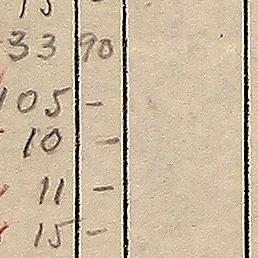 15 -
33 90
105 -
10 -
11 -
15 -